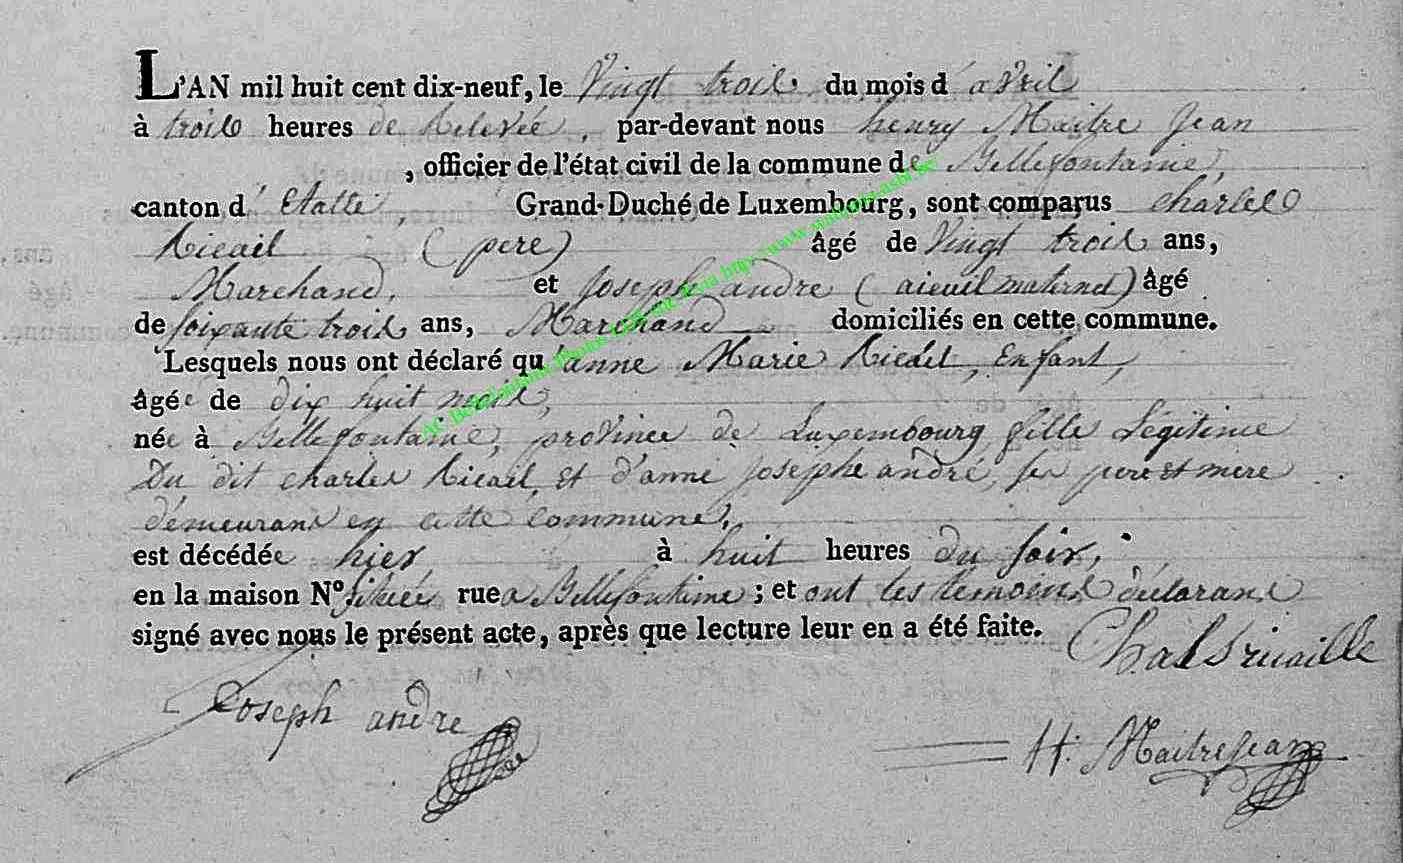 L'AN mil huit cent dix-neuf, le Vingt trois du mois d'avril
à trois heures de Relevée, par-devant nous henry Maitre Jean
, officier de l'état civil de la commune de Bellefontaine,
canton d'Etalle, Grand-Duché de Luxembourg, sont comparus charles
Ricail (pere) âgé de Vingt trois ans,
Marchand, et Joseph andre (aieuil maternel) âgé
de soixante trois ans, Marchand domiciliés en cette commune.
Lesquels nous ont déclaré qu'anne Marie, Enfant,
âgée de dix huit mois,
née à Bellefontaine, province de Luxembourg, fille Légitime
Du dit charles Ricail, et d'anne Josephe andré, ses pere et mere
demeurans en cette commune,
est décédée hier à huit heures du soir,
en la maison N° située rue a Bellefontaine ; et ont les temoins déclarans
signé avec nous le présent acte, après que lecture leur en a été faite.
Chals ricaille
Joseph andre
H. Maitrejean